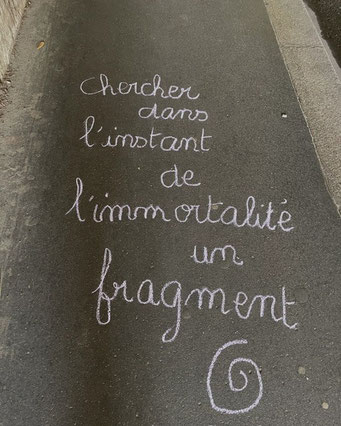 chercher
dans
l'instant
de
l'immortalité
un
fragment